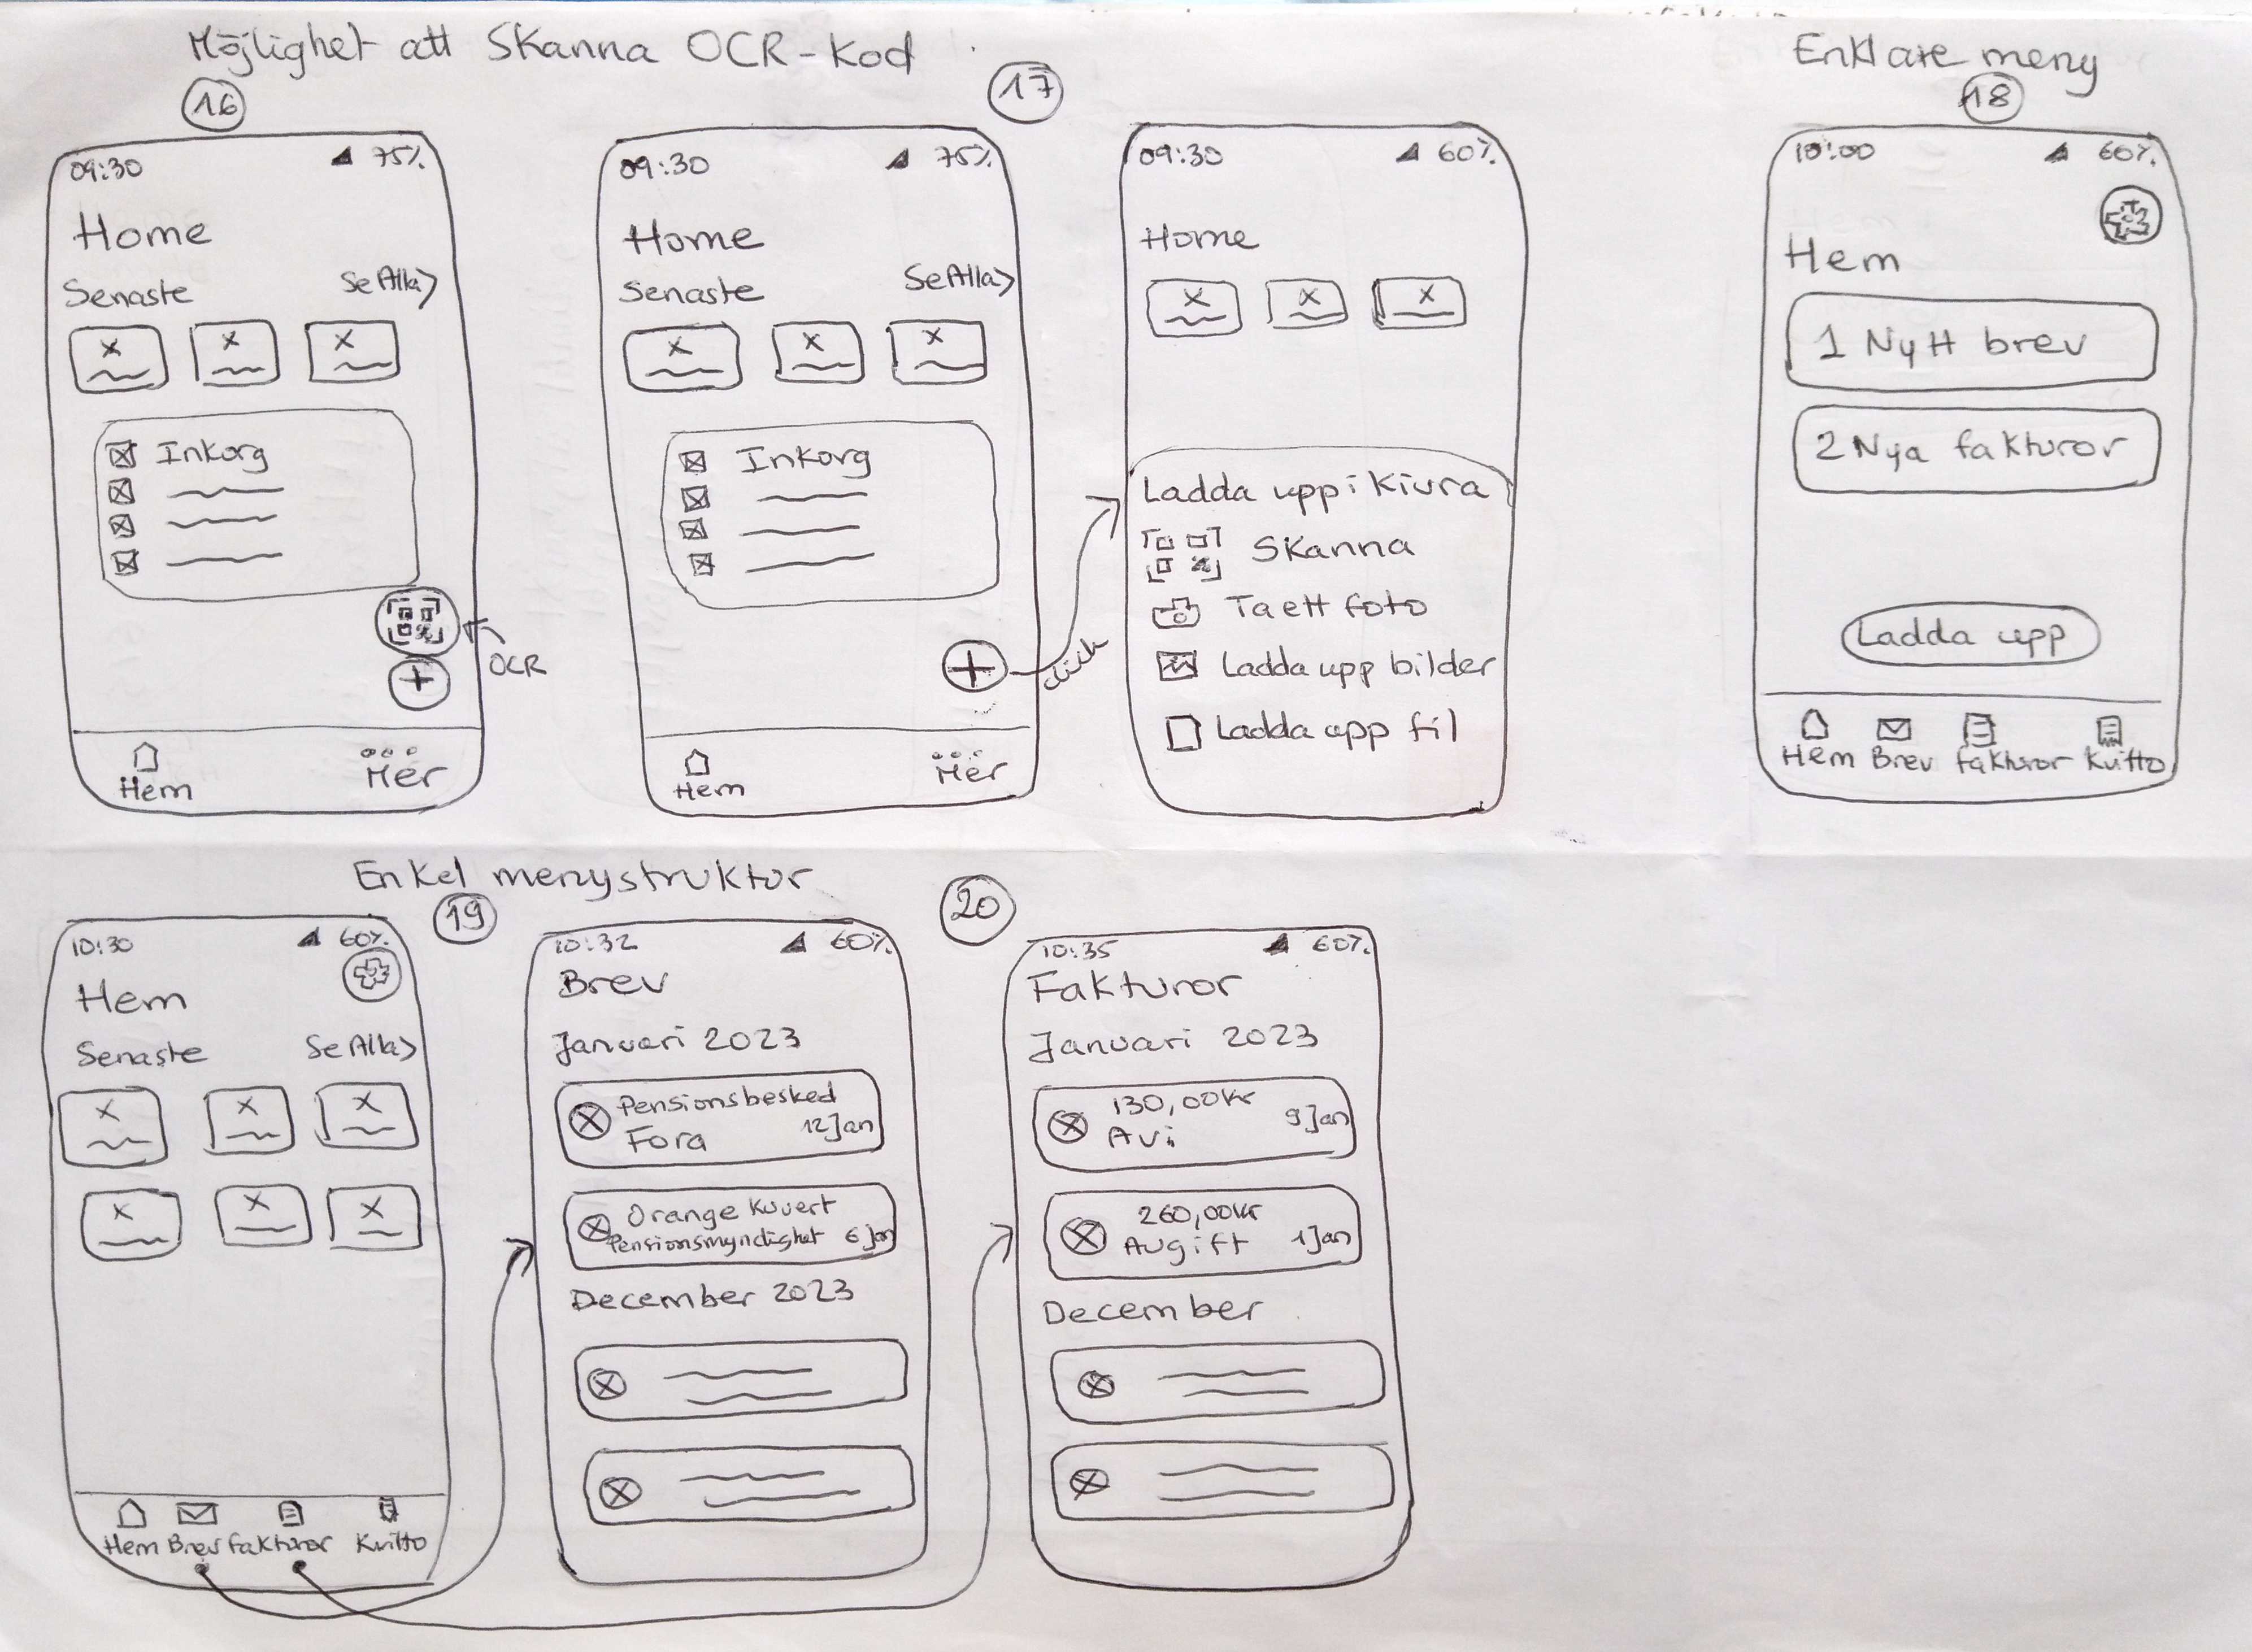 Möjlighet att Skanna OCR-Kod
16
09:30 75%
Home
Senaste Se Alla>
Inkorg
OCR
+
Hem Mer
17
09:30 75%
Home
Senaste Se Alla>
Inkorg
+
click
Hem Mer
09:30 60%
Home
Ladda upp i Kivra
Skanna
Ta ett foto
Ladda upp bilder
Ladda upp fil
Enklare meny
18
10:00 60%
Hem
1 Nytt brev
2 Nya fakturor
Ladda upp
Hem Brev fakturor Kvitto
Enkel menystruktur
19
10:30 60%
Hem
Senaste Se Alla>
Hem Brev fakturor Kvitto
10:32 60%
Brev
Januari 2023
Pensionsbesked
Fora 12 Jan
Orange Kuvert
Pensionsmyndighet 6 Jan
December 2023
20
10:35 60%
Fakturor
Januari 2023
130,00Kr
Avi 9 Jan
260,00Kr
Avgift 1 Jan
December